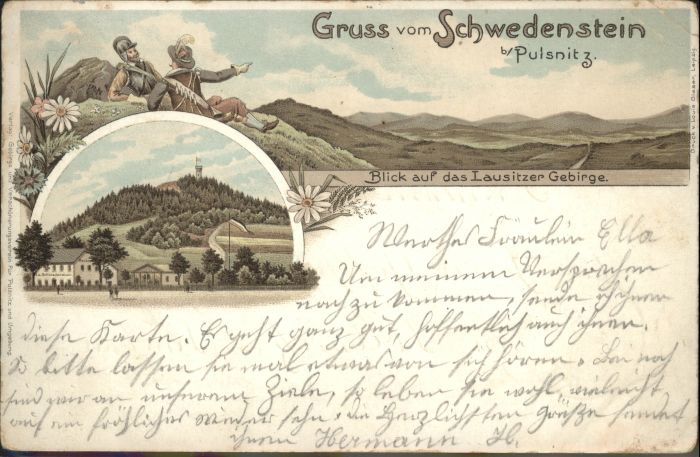 Gruss vom Schwedenstein
b/ Pulsnitz.
Blick auf das Lausitzer Gebirge.
Druck v. Louis Glaser Leipzig
Verlag: Gebirgs- und Verschönerungsverein für Pulsnitz und Umgebung
Werthes Fräulein Ella
Um meinem Versprechen
nach zu kommen, sende ich ihnen
diese Karte. Es geht ganz gut, hoffentlich auch ihnen.
bitte lassen sie mal etwas von sich hören.
sind wir an unserem Ziele, so leben sie wohl, vielleicht
auf ein fröhliches Wieder sehn. Herzlichsten Grüsze sendet
ihnen Hermann H.